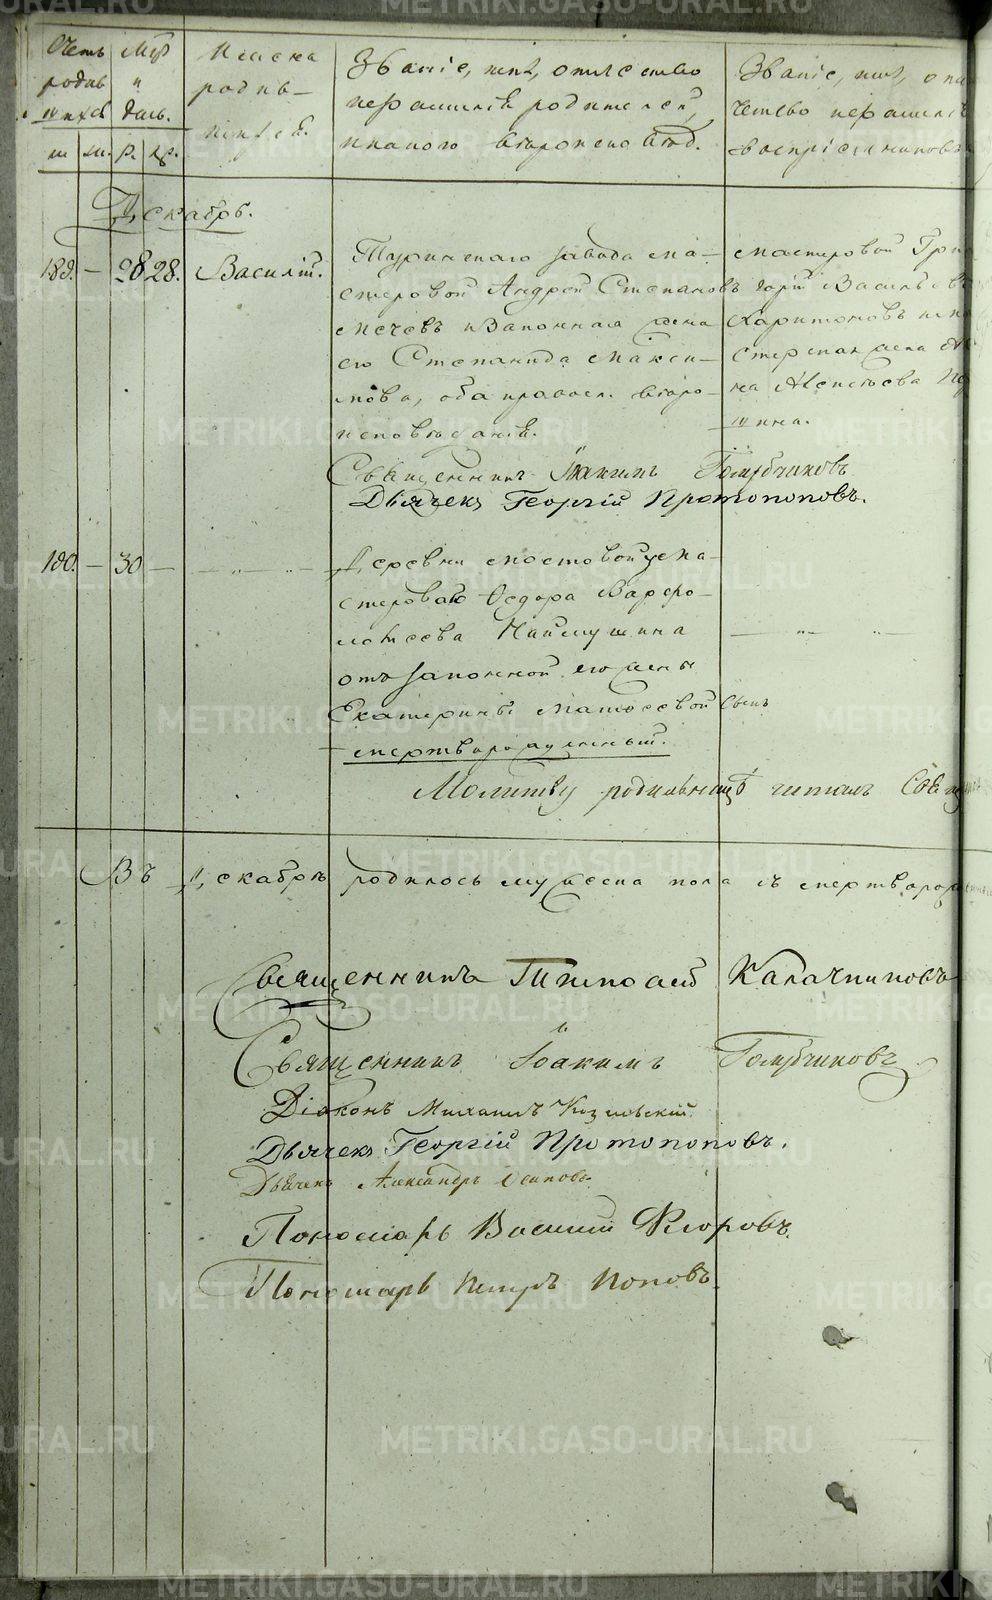 Счетъ родив шихся
м. ж.
Мѣс. и день.
р. кр.
Имена родив-
шихся.
Званіе, имя, отчество
и фамилія родителей,
и какого вѣроисповѣд.
Званіе, имя, отче
чество и фамилія
воспріемниковъ
Декабрь.
189. — 28 28. Василій.
Туринскаго завода ма-
стеровой Андрей Степановъ
и законная жена
его Степанида Макси-
мова, оба правосл. вѣро-
исповѣданія.
мастеровой Григо
горій Васильевъ
Харитоновъ и ма
стерская жена
на
шина.
Священникъ Іоакимъ Голубчиковъ
Дьячекъ Георгій Протопоповъ.
190. — 30 — — „ — „ —
Деревни
стероваго Ѳедора Варѳо-
ломѣева Наймушина
отъ законной его жены
Екатерины Матвѣевой сынъ
мертворожденный.
— „ — „ —
Молитву родильницѣ читалъ Свящ
Въ Декабрѣ родилось мужеска пола съ мертворожденнымъ
Священникъ Тимоѳей Калачниковъ
Священникъ Іоакимъ Голубчиковъ
Діаконъ Михаилъ Козельскій.
Дьячекъ Георгій Протопоповъ.
Дьячекъ Александръ Осиповъ
Пономарь Василій Флоровъ.
Пономарь Петръ Поповъ.
METRIKI.GASO-URAL.RU